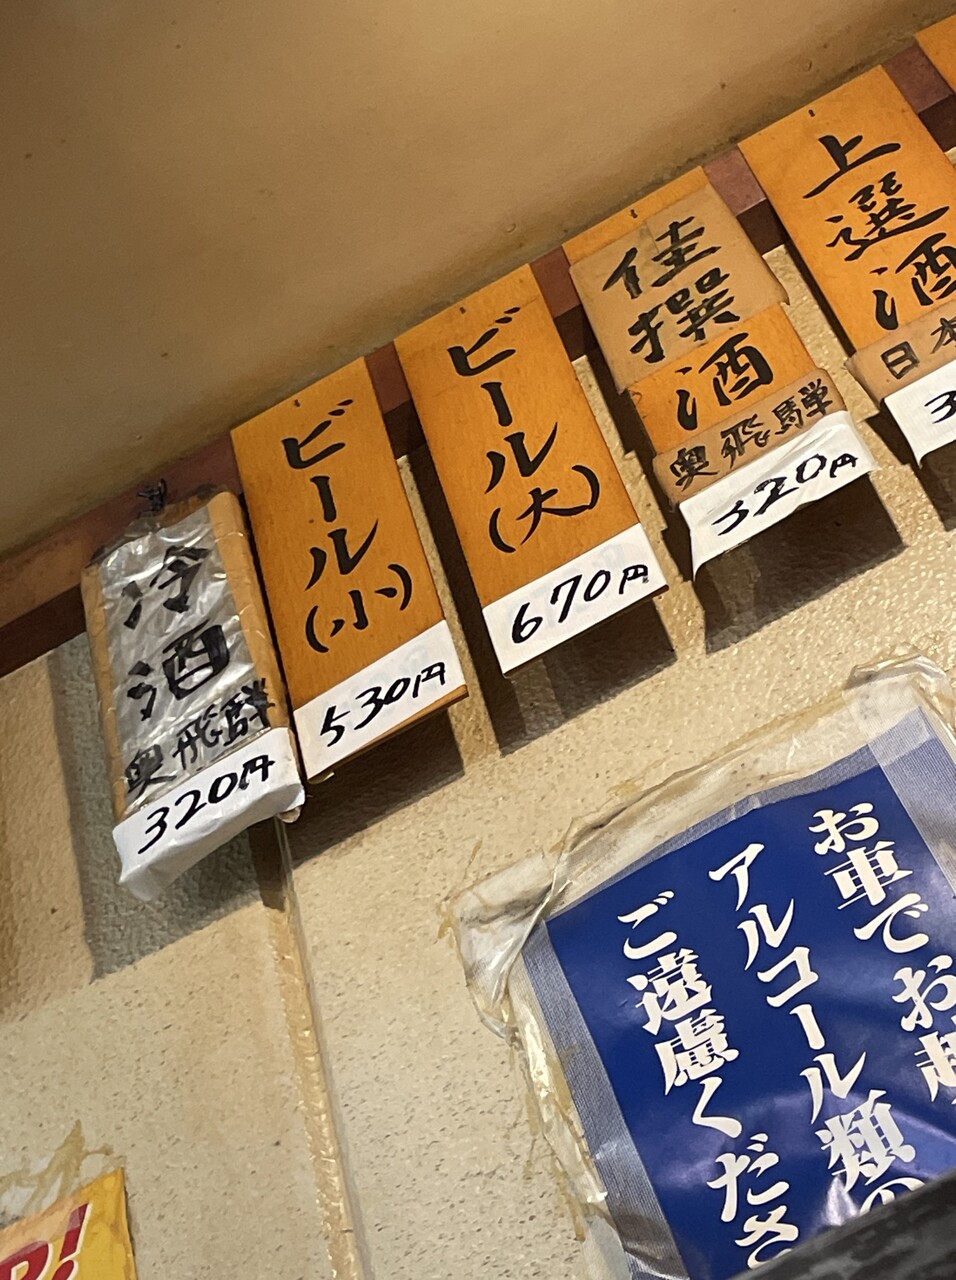 上選酒
日本
3
佳撰
酒
奥飛騨
320円
ビール(大)
670円
ビール(小)
530円
冷酒
奥飛騨
320円
お車でお越
アルコール類の
ご遠慮くださ